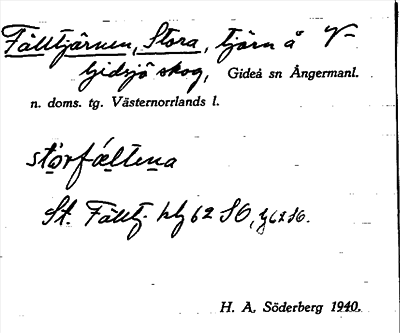 Fälltjärnen, Stora, tjärn å V-
Gidsjö skog, Gideå sn Ångermanl.
n. doms. tg. Västernorrlands l.
St. Fälltj. hfg 62 SO, fg 62 SO.
H. A. Söderberg 1940.